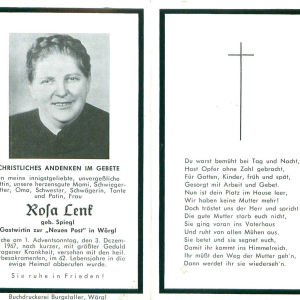 CHRISTLICHES ANDENKEN IM GEBETE
meine innigstgeliebte, unvergeßliche
tin, unsere herzensgute Mami, Schwieger-
tter, Oma, Schwester, Schwägerin, Tante
und Patin, Frau
Rosa Lenk
geb. Spiegl
Gastwirtin zur „Neuen Post" in Wörgl
che am 1. Adventsonntag, den 3. Dezem-
1967, nach kurzer, mit größter Geduld
ragener Krankheit, versehen mit den heil.
besakramenten, im 62. Lebensjahre in die
ewige Heimat abberufen wurde.
Sie ruhe in Frieden!
Buchdruckerei Burgstaller, Wörgl
Du warst bemüht bei Tag und Nacht,
Hast Opfer ohne Zahl gebracht,
Für Gatten, Kinder, früh und spät,
Gesorgt mit Arbeit und Gebet.
Nun ist dein Platz im Hause leer,
Wir haben keine Mutter mehr!
Doch tröstet uns der Herr und spricht:
Die gute Mutter starb euch nicht,
Sie ging voran ins Vaterhaus
Und ruht von allen Mühen aus.
Sie betet und sie segnet euch,
Damit ihr kommt ins Himmelreich.
Ihr müßt den Weg der Mutter geh'n,
Dann werdet ihr sie wiederseh'n.